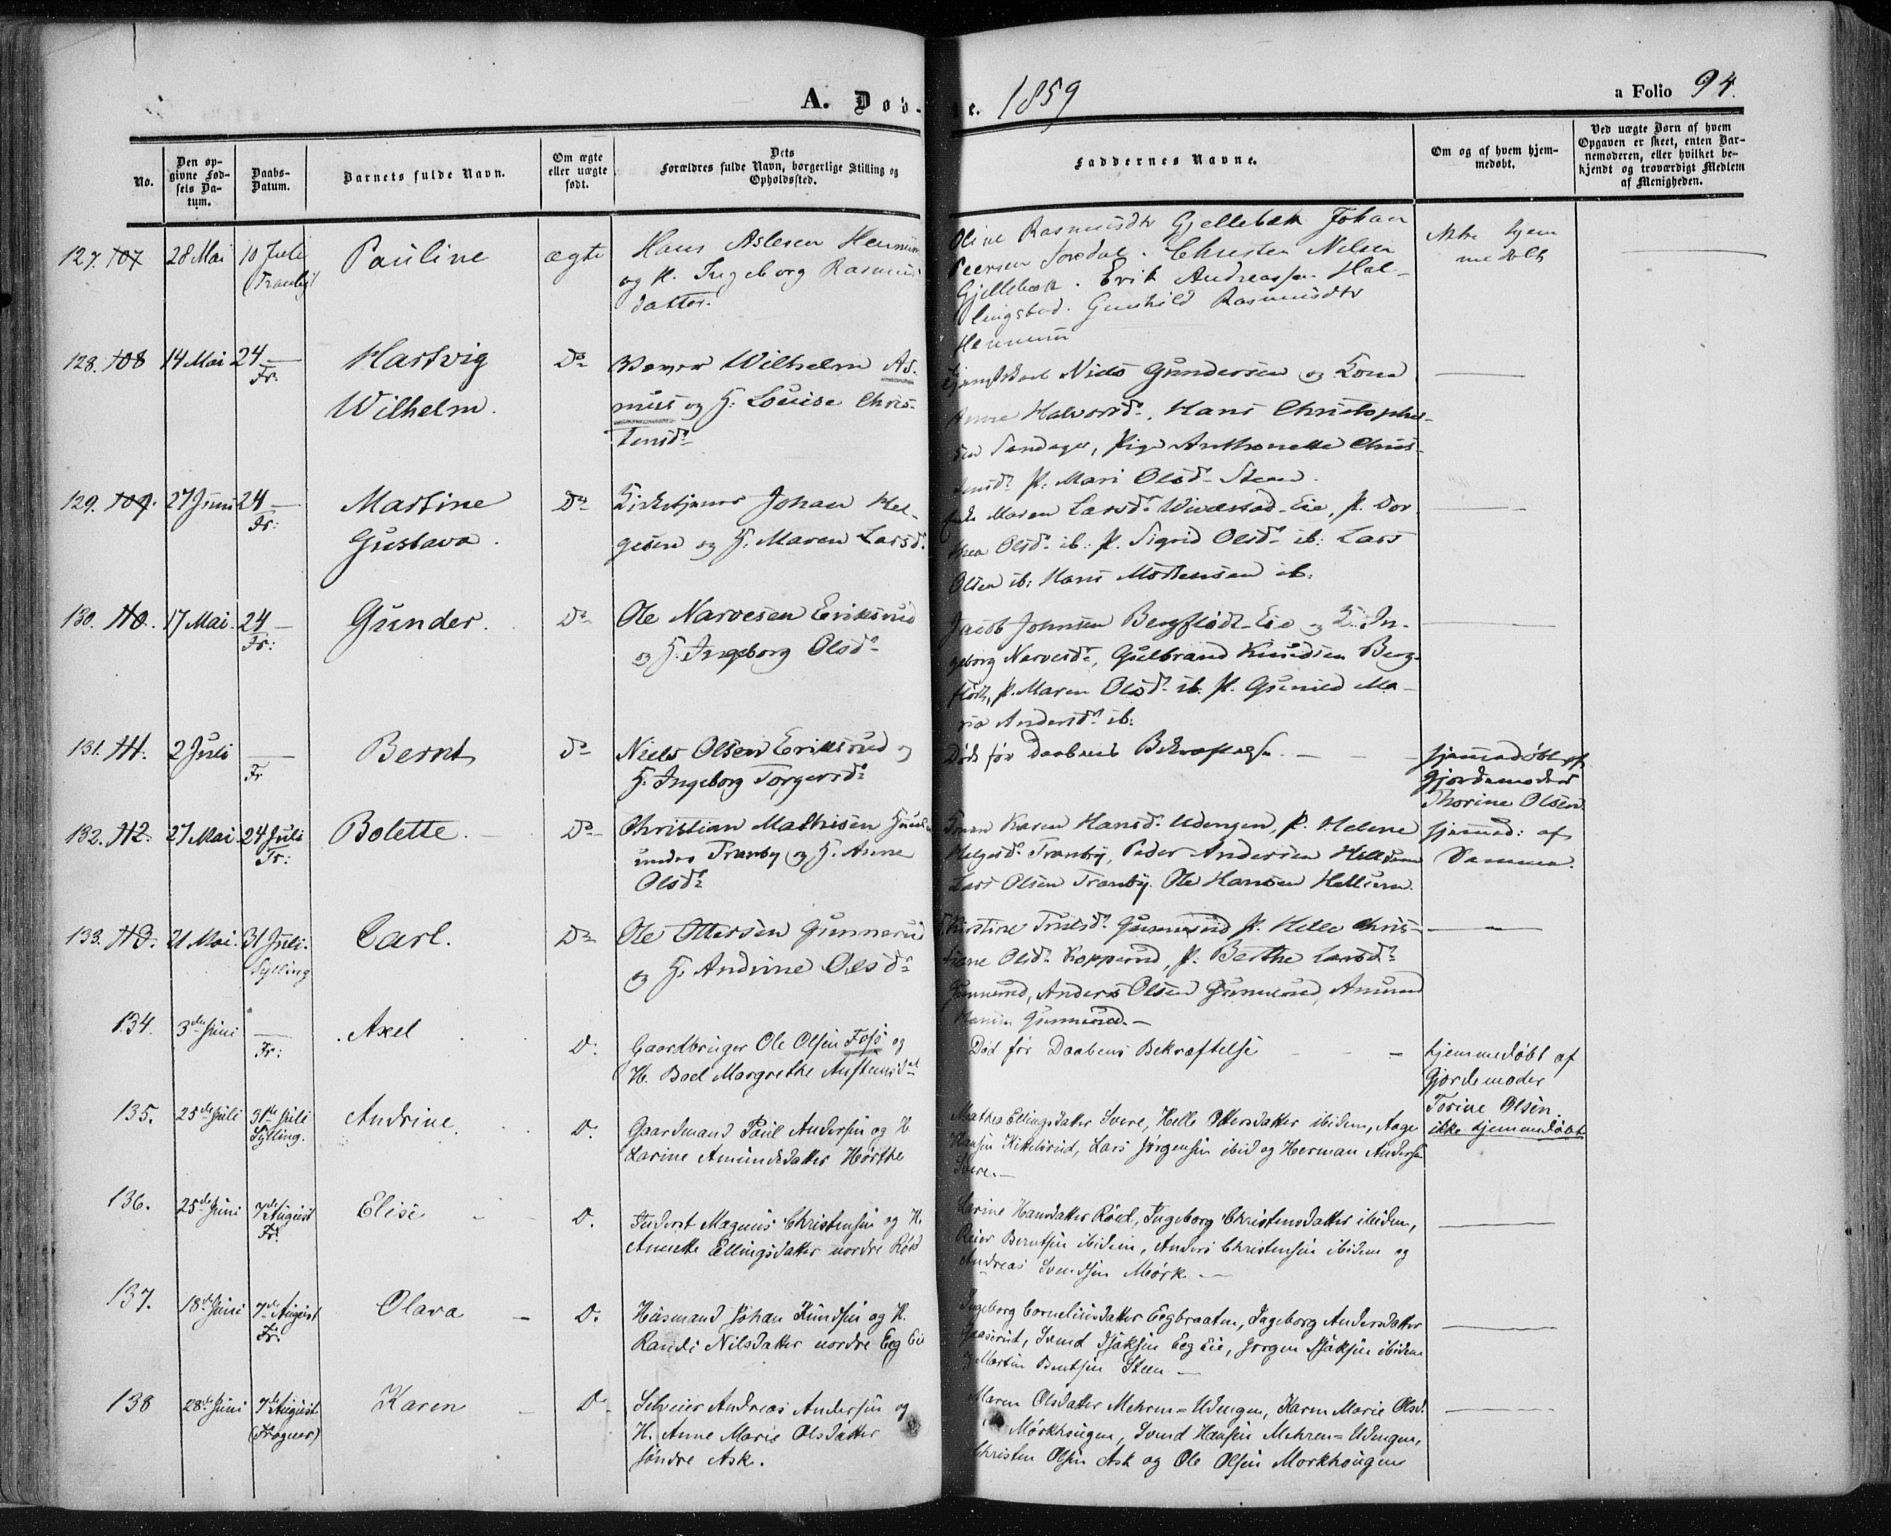 A. Døb-te. 1859
a Folio 94.
No.
Den op-
givne Fød-
sels Da-
tum.
Daabs-
Datum.
Barnets fulde Navn.
Om ægte
eller uægte
født.
Dets
Forældres fulde Navn, borgerlige Stilling og
Opholdssted.
Faddernes Navne.
Om og af hvem hjem-
medøbt.
Ved uægte Børn af hvem
Opgaven er skeet, enten Bar-
nemoderen, eller hvilket be-
kjendt og troværdigt Medlem
af Menigheden.
127. 107 28 Mai 10 Juli
(Tranby)
Pauline
ægte
Hans Aslesen
og K. Ingeborg Rasmus
datter.
Oline Rasmusdtr Gjellebæk Johan
Peersen Christen Nilsen
Gjellebæk. Erik Andreassen Hal-
lingstad. Gunhild Rasmusdtr
Ikke hjem
medøbt
128. 108 14 Mai 24 —
Fr.
Hartvig
Wilhelm.
Do
Wilhelm As-
mus og H: Louise Chris-
tensdr
Niels Gundersen og Kone
Anne Halvorsdr, Hans Christopher-
sen Pige Anthonette Chris-
tensdr P. Mari Olsdr Steen.
129. 109. 27 Juni 24 —
Fr:
Martine
Gustava.
Do
Kirketjener Johan Hel-
gesen og H. Maren Larsdr
Enke Maren Larsdr Eie, P. Dor-
thea Olsdr ib: P. Sigrid Olsdr ib: Lars
Olsen ib: Hans Mortensen ib:
130. 110. 17 Mai. 24 —
Fr:
Gunder.
Do
Ole Narvesen Eriksrud
og H. Ingeborg Olsdr
Jacob Johnsen Bergflødt-Eie og K. In-
geborg Narvesdr, Gulbrand Knudsen Berg-
flødt, P. Maren Olsdr ib. P. Gunild Ma-
ria Andersdr ib:
131. 111. 2 Juli —
Fr
Bernt
Do
Niels Olsen Eriksrud og
H. Ingeborg Torgersdr
Død før Daabens Bekræftelse. — — —
hjemmedøbt af
Gjordemoder
Thorine Olsen
132. 112. 27 Mai. 24 Juli
Fr:
Bolette.
Do
Christian Mathisen
under Tranby og H. Anne
Olsdr
Karen Hansdr Udengen, P. Helene
Helgesdr Tranby, Peder Andersen Hellum
Lars Olsen Tranby. Ole Hansen Hellum.
hjemmed: af
Samme.
133. 113. 21 Mai. 31 Juli.
Sylling
Carl.
Do
Ole Ottersen Gunnerud
og H. Andrine Olsdr
Kirstine Trulsdr Gunnerud P. Helle Chris-
tiane Olsdr Kopperud, P. Berthe Larsdr
Gunnerud, Anders Olsen Gunnerud, Amund
Hansen Gunnerud. —
134. 3de Juni —
Fr:
Axel
D.
Gaardbruger Ole Olsen Foss og
H. Boel Margrethe Austensdat
Død før Daabens Bekræftelse — — —
hjemmedøbt af
Gjordemoder
Torine Olsen.
135. 25de Juli 31te Juli
Sylling.
Andrine.
D.
Gaardmand Paul Andersen og H
Larine Amundsdatter Hørthe
Mathea Ellingsdatter Svere, Helle Ottersdatter ibidem, Aage
Hansen Kittelsrud, Lars Jørgensen ibid og Herman Andersen
Svere. —
ikke hjemmedøbt
136. 25de Juni 7de August
Fr.
Elise
D.
Inderst Magnus Christensen og H.
Annette Ellingsdatter nordre Röed
Larine Hansdatter Röed, Ingeborg Christensdatter ibidem,
Reier Berntsen ibidem, Anders Christensen ibidem og
Andreas Svendsen Mörk. —
137. 18de Juni 7de August
Fr.
Olava
D.
Husmand Johan Knudsen og H.
Randi Nilsdatter nordre Eeg Eie
Ingeborg Corneliusdatter Eegbraaten, Ingeborg Andersdatter
Gaaserud, Svend Isaksen Eeg Eie, Jörgen Isaksen ibidem
og Martin Berntsen Steen —
138 28de Juni 7de August
(Frogner)
Karen
D.
Selveier Andreas Andersen og
H. Anne Marie Olsdatter
søndre Ask.
Maren Olsdatter Mehren=Udengen, Karen Marie Olsd.
Mörkhaugen, Svend Hansen Mehren=Udengen,
Christen Olsen Ask og Ole Olsen Mørkhaugen